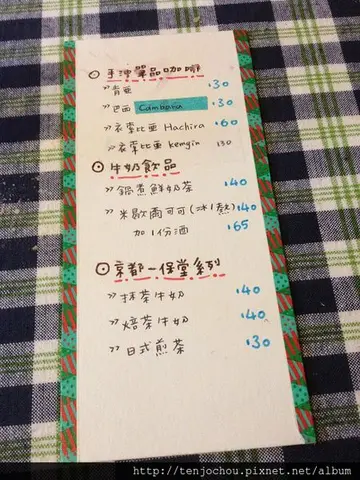 手沖單品咖啡
» 肯亞 130
» 巴西 Cambara 130
» 衣索比亞 Hachira 160
» 衣索比亞 Kemgin 130
牛奶飲品
» 鍋煮鮮奶茶 140
» 米歇爾可可(冰/熱) 140
加1份酒 165
京都一保堂系列
» 抹茶牛奶 140
» 焙茶牛奶 140
» 日式煎茶 130
http://tenjochou.pixnet.net/album